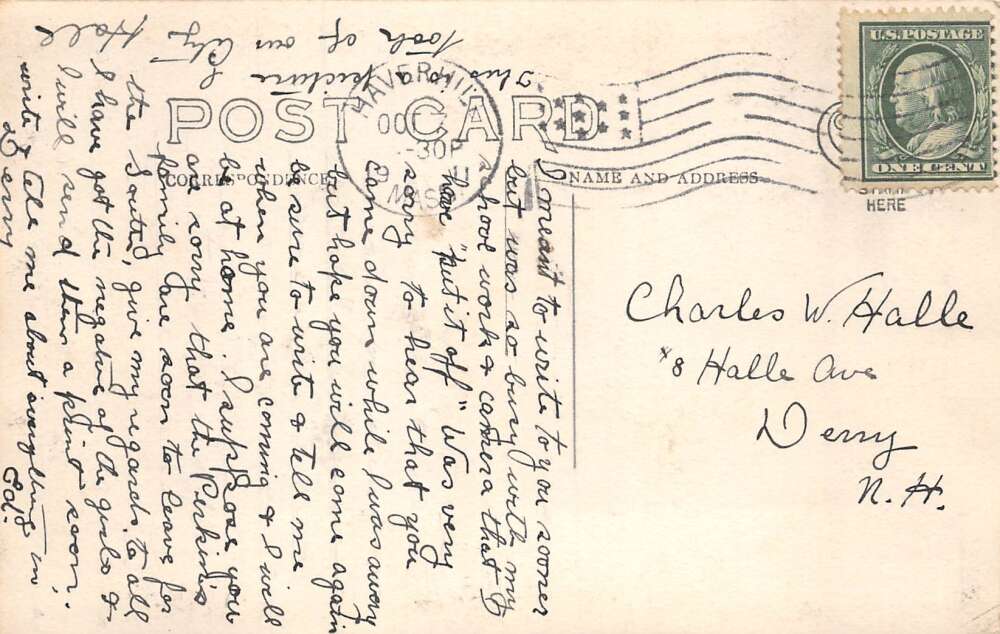 POST CARD
CORRESPONDENCE
NAME AND ADDRESS
HAVERHILL
OCT
-30P
11
MASS
U.S. POSTAGE
ONE CENT
HERE
Charles W. Halle
#8 Halle Ave
Derry
N.H.
I meant to write to you sooner
but was so busy with my
school work & camera that I
have "put it off" Was very
sorry to hear that you
came down while I was away
but hope you will come again
be sure to write & tell me
when you are coming & I will
be at home. I suppose you
are sorry that the Perkins
family are soon to leave for
the South, give my regards to all
I have got the negative of the girls &
I will send them a print soon.
write & tell me about everything in
Derry
Ed.
This is a picture I
took of our City Hall